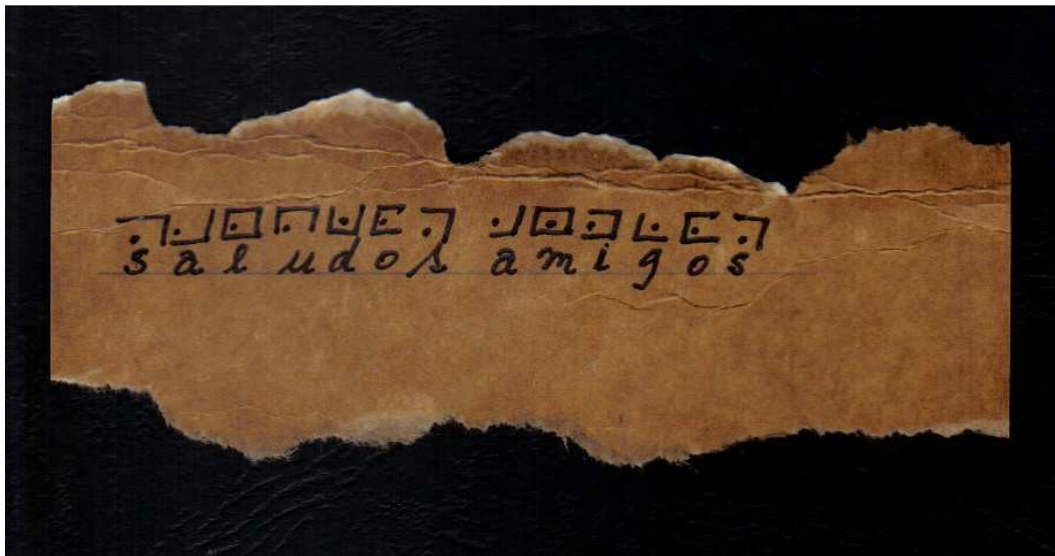 saludos amigos